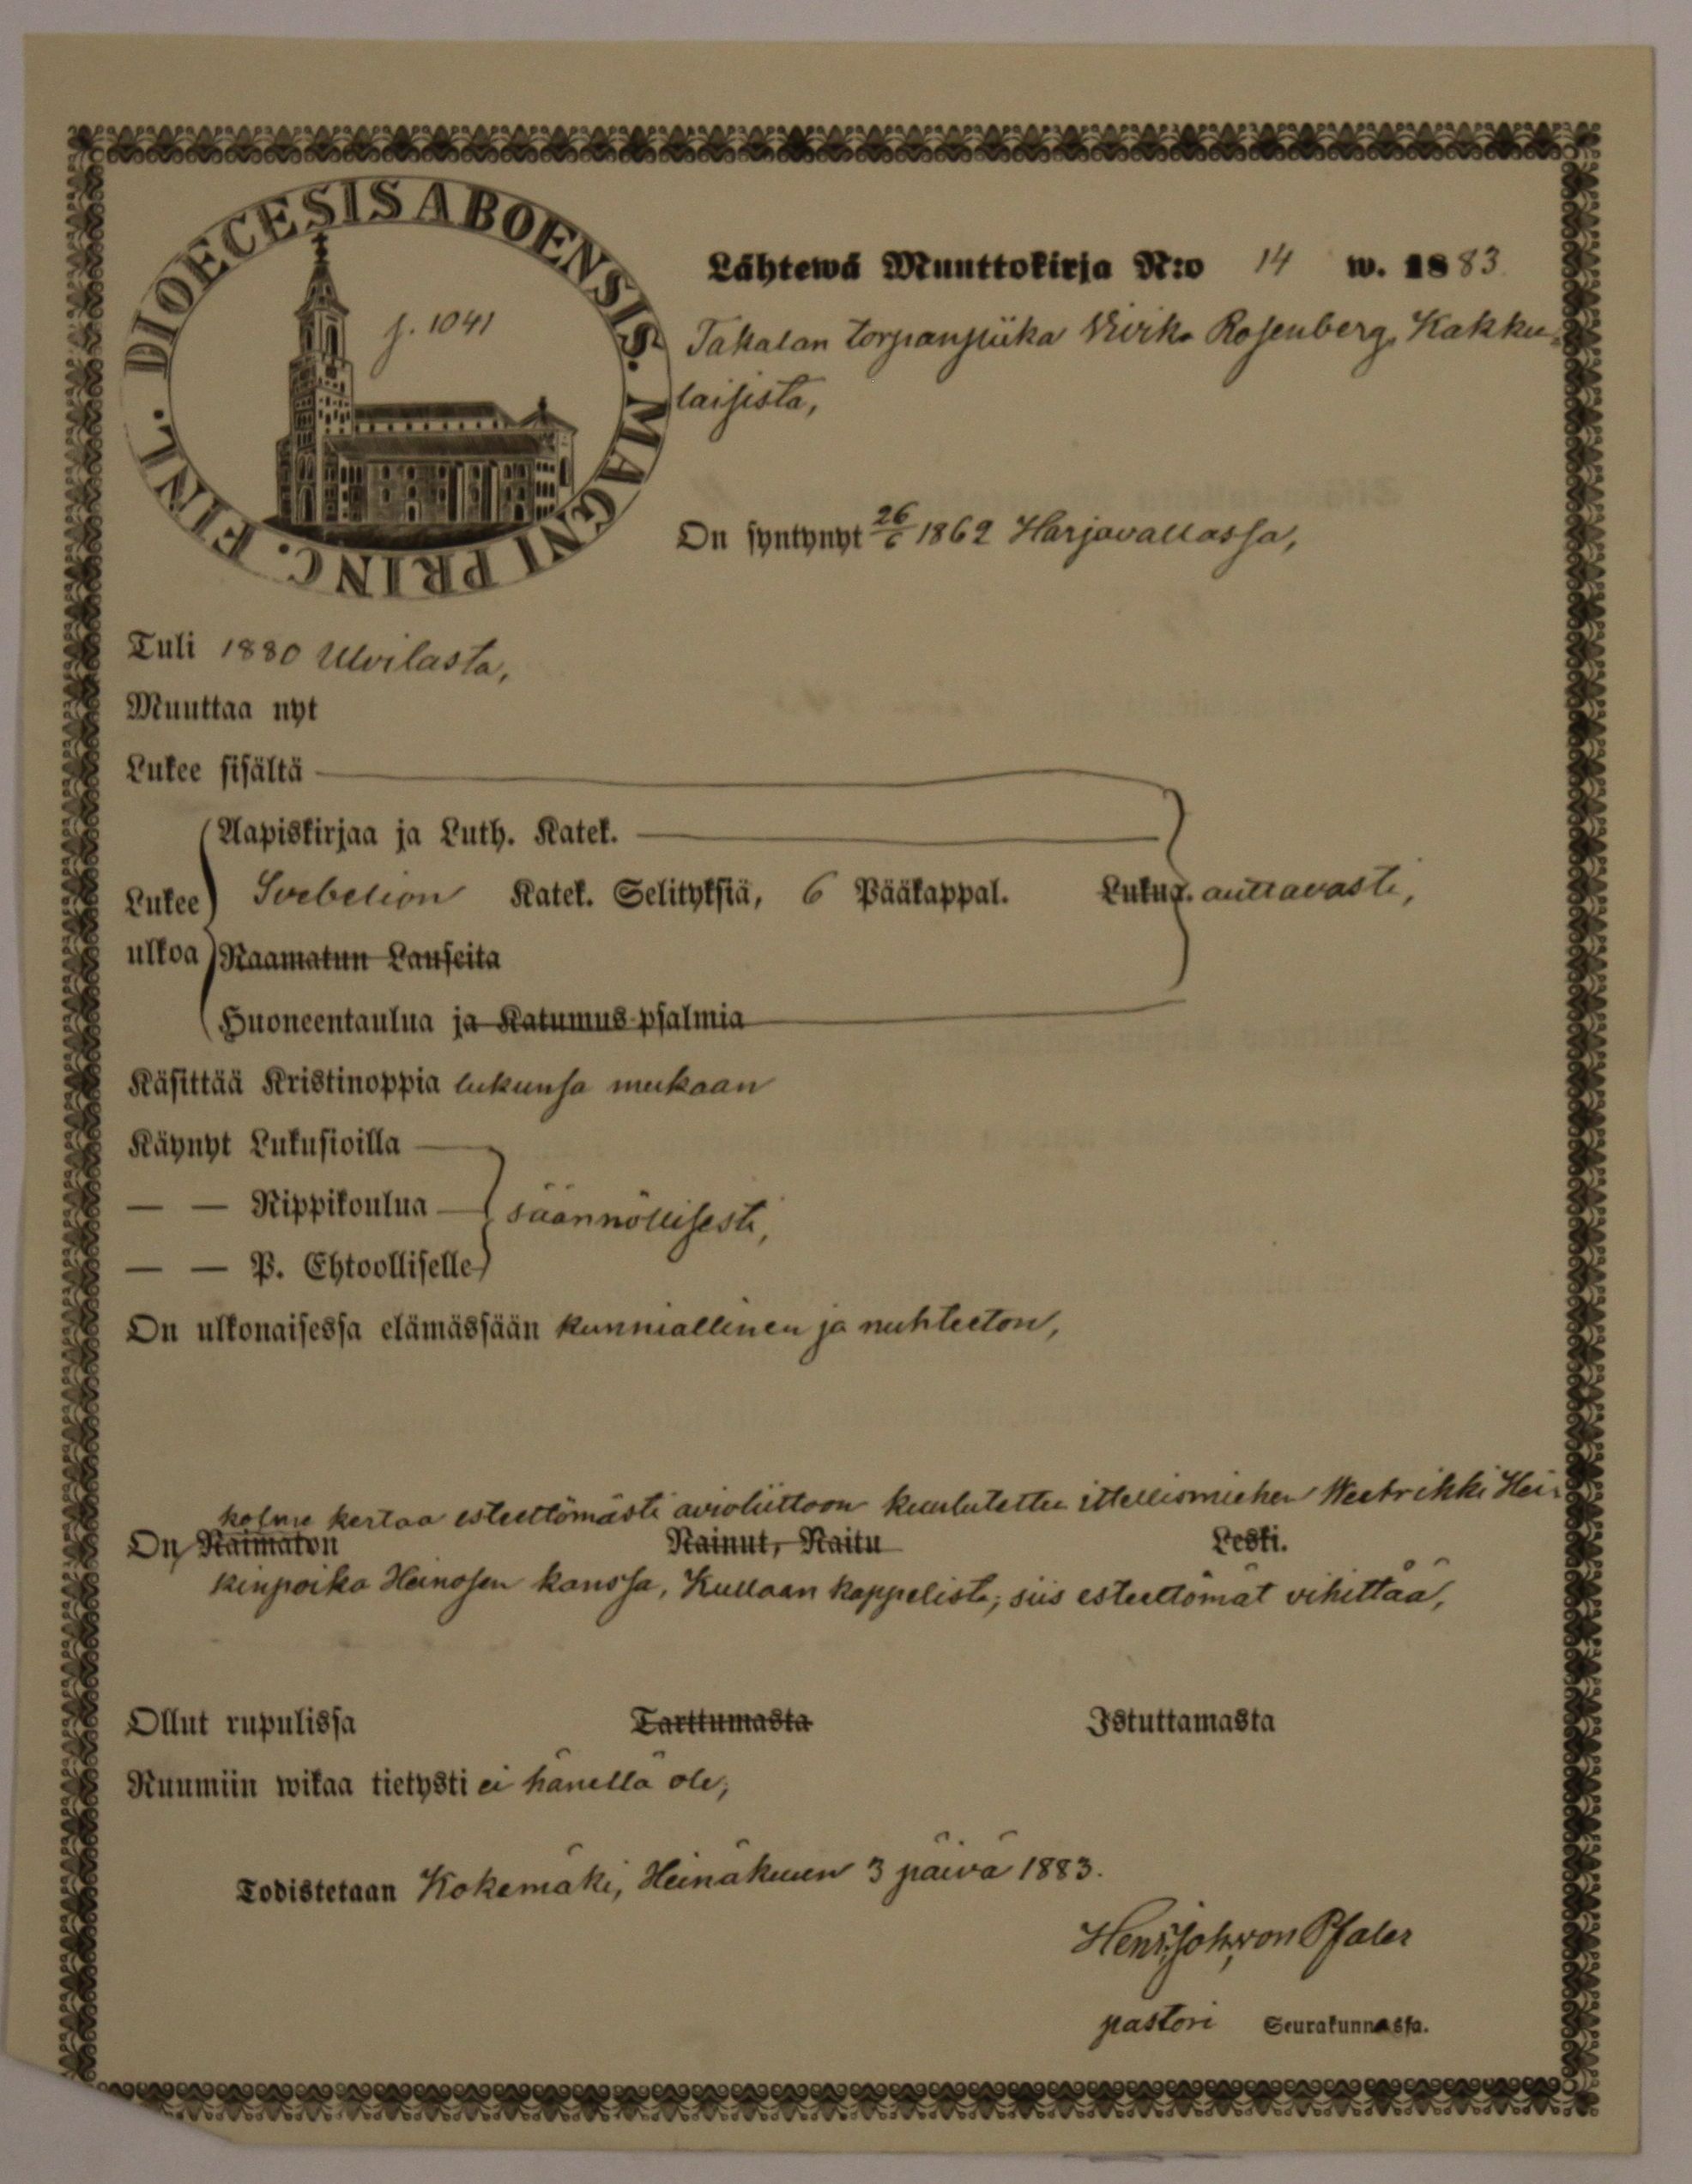 DIOECESIS ABOENSIS. MAGNI PRINC. FINL.
p. 1041
Lähtewä Muuttokirja N:o 14 w. 1883.
Takalan torpanpiika Rosenberg, Kakku-
laisista,
On syntynyt 26/6 1862 Harjavallassa,
Tuli 1880 Ulvilasta,
Muuttaa nyt
Lukee sisältä
Aapiskirjaa ja Luth. Katek.
Lukee Svebelion Katek. Selityksiä, 6 Pääkappal. Lukua. auttavasti,
ulkoa Raamatun Lauseita
Huoneentaulua ja Katumus-psalmia
Käsittää Kristinoppia lukunsa mukaan
Käynyt Lukusioilla
— — Rippikoulua säännöllisesti,
— — P. Ehtoolliselle
On ulkonaisessa elämässään kunniallinen ja nuhteeton,
kolme kertaa esteettömästi avioliittoon kuulutettu ittellismiehen Weetrikki Hei
On Naimaton Nainut, Naitu Leski.
kinpoika Heinosen kanssa, Kullaan kappelista; siis esteettömät vihittää,
Ollut rupulissa Tarttumasta Istuttamasta
Ruumiin wikaa tietysti ei hänellä ole;
Todistetaan Kokemäki, Heinäkuun 3 päivä 1883.
Henr. Joh. von Pfaler
pastori Seurakunnassa.